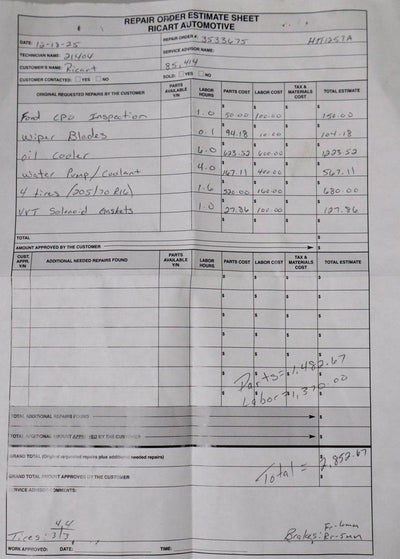 REPAIR ORDER ESTIMATE SHEET
RICART AUTOMOTIVE
DATE: 12-13-25 REPAIR ORDER #: 3533675 HTT1257A
TECHNICIAN NAME: 21404 SERVICE ADVISOR NAME:
CUSTOMER'S NAME: Ricart 85,414
CUSTOMER CONTACTED: YES NO SOLD: YES NO
ORIGINAL REQUESTED REPAIRS BY THE CUSTOMER PARTS AVAILABLE Y/N LABOR HOURS PARTS COST LABOR COST TAX & MATERIALS COST TOTAL ESTIMATE
Ford CPO Inspection 1.0 $50.00 $100.00 $ $150.00
Wiper Blades 0.1 $94.18 $10.00 $ $104.18
oil Cooler 6.0 $623.52 $600.00 $ $1223.52
Water Pump/Coolant 4.0 $167.11 $400.00 $ $567.11
4 tires (205/70R16) 1.6 $520.00 $160.00 $ $680.00
VVT Solenoid Gaskets 1.0 $27.86 $100.00 $ $127.86
TOTAL $
AMOUNT APPROVED BY THE CUSTOMER $
CUST. APPR. Y/N ADDITIONAL NEEDED REPAIRS FOUND PARTS AVAILABLE Y/N LABOR HOURS PARTS COST LABOR COST TAX & MATERIALS COST TOTAL ESTIMATE
Parts = 1,482.67
Labor = 1,370.00
TOTAL ADDITIONAL REPAIRS FOUND $
TOTAL ADDITIONAL AMOUNT APPROVED BY THE CUSTOMER $
GRAND TOTAL (Original requested repairs plus additional needed repairs) $
Total = 2,852.67
GRAND TOTAL AMOUNT APPROVED BY THE CUSTOMER $
SERVICE ADVISOR COMMENTS:
4 4
Tires: 3 3
Brakes: Fr-6mm
Rr-5mm
WORK APPROVED: DATE: TIME: